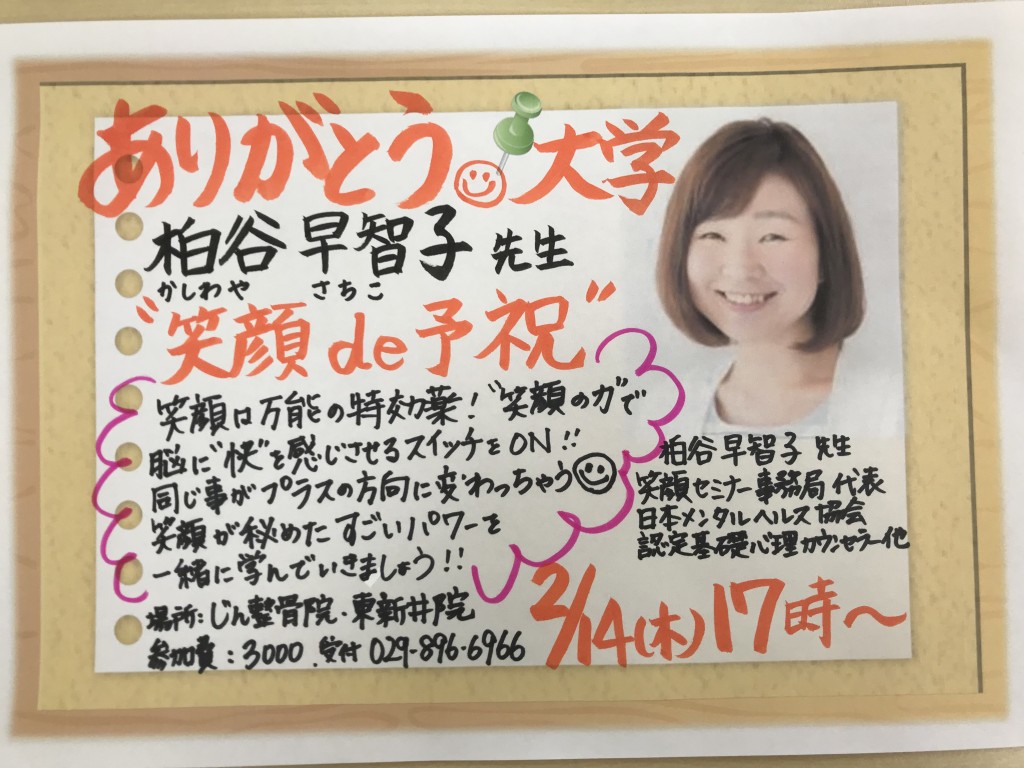 ありがとう大学
柏谷 早智子 先生
かしわや さちこ
"笑顔de予祝"
笑顔は万能の特効薬!"笑顔の力"で
脳に"快"を感じさせるスイッチをON!!
同じ事がプラスの方向に変わっちゃう
笑顔が秘めたすごいパワーを
一緒に学んでいきましょう!!
場所:じん整骨院・東新井院
参加費:3000 受付 029-896-6966
柏谷早智子 先生
笑顔セミナー事務局 代表
日本メンタルヘルス協会
認定基礎心理カウンセラー他
2/14(木)17時～